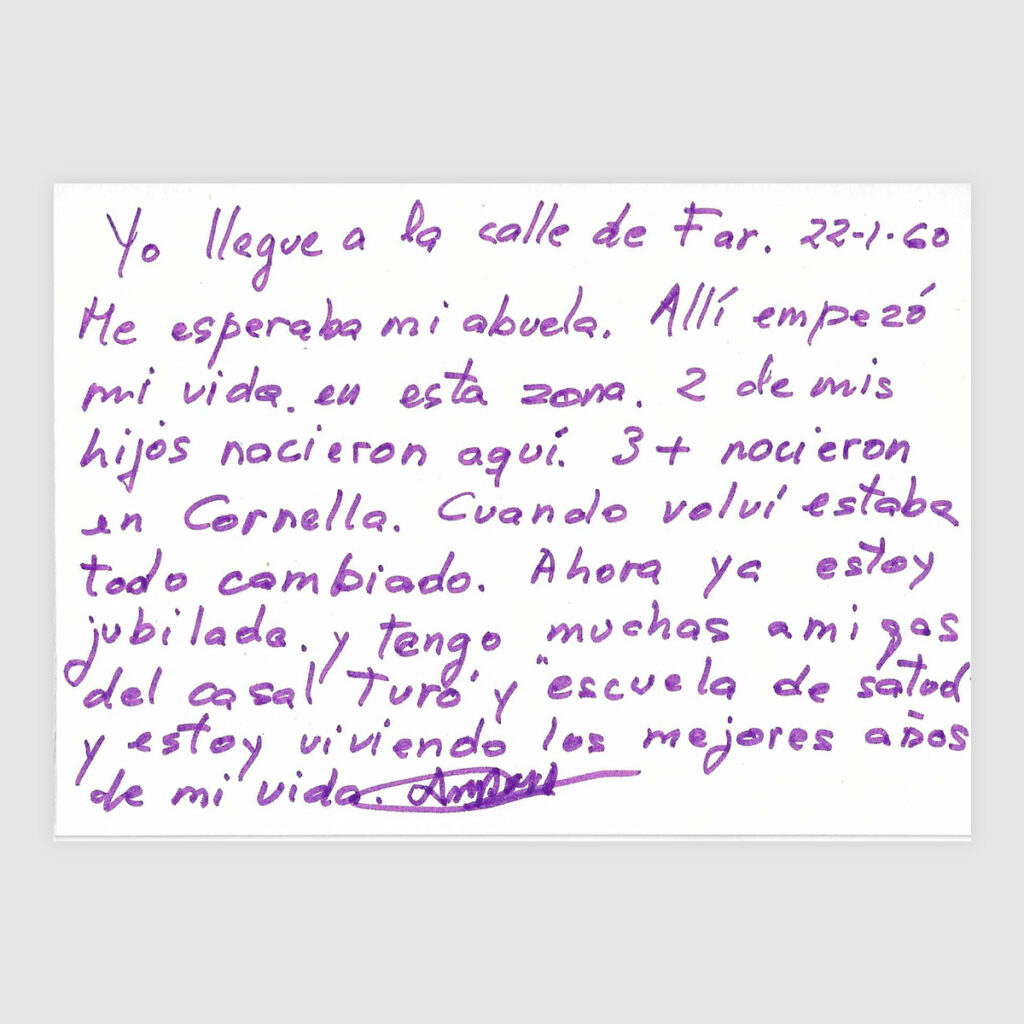 Yo llegue a la calle de Far. 22-1-60
Me esperaba mi abuela. Allí empezó
mi vida. en esta zona. 2 de mis
hijos nacieron aquí. 3+ nacieron
en Cornella. Cuando volví estaba
todo cambiado. Ahora ya estoy
jubilada. y tengo muchas amigas
del casal "Turó" y "escuela de salod"
y estoy viviendo los mejores años
de mi vida.